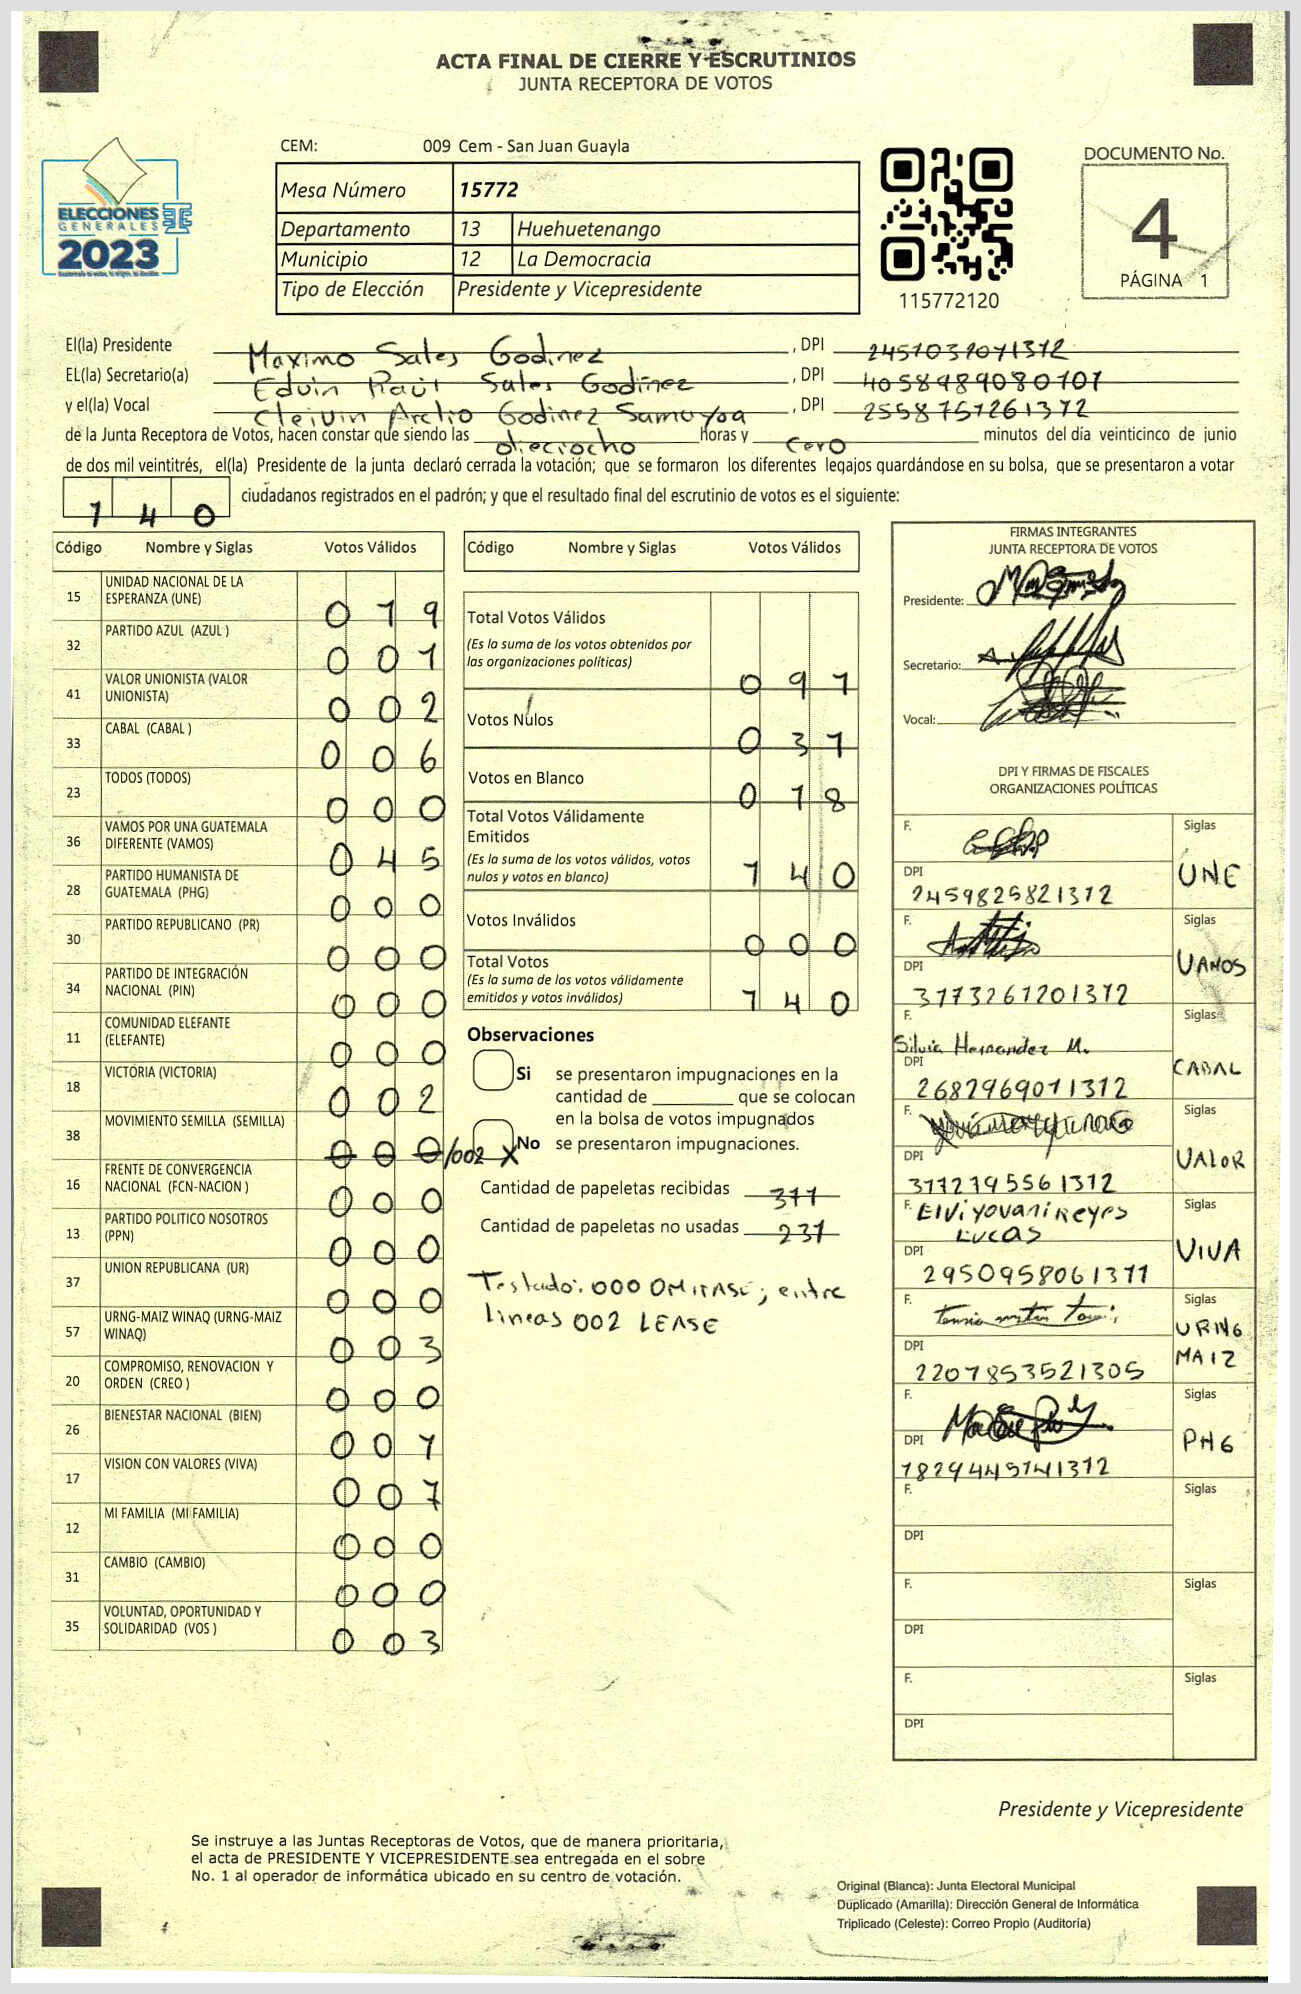 ACTA FINAL DE CIERRE Y ESCRUTINIOS
JUNTA RECEPTORA DE VOTOS
CEM: 009 Cem - San Juan Guayla
ELECCIONES
GENERALES
2023
Mesa Número 15772
Departamento 13 Huehuetenango
Municipio 12 La Democracia
Tipo de Elección Presidente y Vicepresidente
115772120
DOCUMENTO No.
4
PÁGINA 1
El(la) Presidente Maximo Sales Godinez, DPI
EL(la) Secretario(a) Edvin Raúl Sales Godinez, DPI 4058989080101
y el(la) Vocal Godinez Samayoa, DPI 2558757261312
de la Junta Receptora de Votos, hacen constar que siendo las dieciocho horas y cero minutos del día veinticinco de junio
de dos mil veintitrés, el(la) Presidente de la junta declaró cerrada la votación; que se formaron los diferentes legajos quardándose en su bolsa, que se presentaron a votar
140 ciudadanos registrados en el padrón; y que el resultado final del escrutinio de votos es el siguiente:
Código Nombre y Siglas Votos Válidos
15 UNIDAD NACIONAL DE LA
ESPERANZA (UNE) 019
32 PARTIDO AZUL (AZUL ) 001
41 VALOR UNIONISTA (VALOR
UNIONISTA) 002
33 CABAL (CABAL ) 006
23 TODOS (TODOS) 000
36 VAMOS POR UNA GUATEMALA
DIFERENTE (VAMOS) 045
28 PARTIDO HUMANISTA DE
GUATEMALA (PHG) 000
30 PARTIDO REPUBLICANO (PR) 000
34 PARTIDO DE INTEGRACIÓN
NACIONAL (PIN) 000
11 COMUNIDAD ELEFANTE
(ELEFANTE) 000
18 VICTORIA (VICTORIA) 002
38 MOVIMIENTO SEMILLA (SEMILLA) 000/002
16 FRENTE DE CONVERGENCIA
NACIONAL (FCN-NACION ) 000
13 PARTIDO POLITICO NOSOTROS
(PPN) 000
37 UNION REPUBLICANA (UR) 000
57 URNG-MAIZ WINAQ (URNG-MAIZ
WINAQ) 003
20 COMPROMISO, RENOVACION Y
ORDEN (CREO ) 000
26 BIENESTAR NACIONAL (BIEN) 001
17 VISION CON VALORES (VIVA) 007
12 MI FAMILIA (MI FAMILIA) 000
31 CAMBIO (CAMBIO) 000
35 VOLUNTAD, OPORTUNIDAD Y
SOLIDARIDAD (VOS ) 003
Código Nombre y Siglas Votos Válidos
Total Votos Válidos
(Es la suma de los votos obtenidos por
las organizaciones políticas) 091
Votos Nulos 031
Votos en Blanco 018
Total Votos Válidamente
Emitidos
(Es la suma de los votos válidos, votos
nulos y votos en blanco) 140
Votos Inválidos 000
Total Votos
(Es la suma de los votos válidamente
emitidos y votos inválidos) 140
Observaciones
Si se presentaron impugnaciones en la
cantidad de ________ que se colocan
en la bolsa de votos impugnados
X No se presentaron impugnaciones.
Cantidad de papeletas recibidas 371
Cantidad de papeletas no usadas 231
Testado: 000 OMITASE; entre
lineas 002 LEASE
FIRMAS INTEGRANTES
JUNTA RECEPTORA DE VOTOS
Presidente:
Secretario:
Vocal:
DPI Y FIRMAS DE FISCALES
ORGANIZACIONES POLÍTICAS
F. Siglas
DPI UNE
2459825821312
F. Siglas
DPI VAMOS
3173261201312
F. Siglas
Silvia Hernandez M.
DPI CABAL
2682969011312
F. Siglas
DPI VALOR
3172195561312
F. Elvi Yovani Reyes Siglas
Lucas
DPI VIVA
2950958061311
F. Siglas
DPI URNG
MAIZ
2207853521305
F. Siglas
DPI PHG
1829445141312
F. Siglas
DPI
F. Siglas
DPI
F. Siglas
DPI
Presidente y Vicepresidente
Se instruye a las Juntas Receptoras de Votos, que de manera prioritaria,
el acta de PRESIDENTE Y VICEPRESIDENTE sea entregada en el sobre
No. 1 al operador de informática ubicado en su centro de votación.
Original (Blanca): Junta Electoral Municipal
Duplicado (Amarilla): Dirección General de Informática
Triplicado (Celeste): Correo Propio (Auditoría)